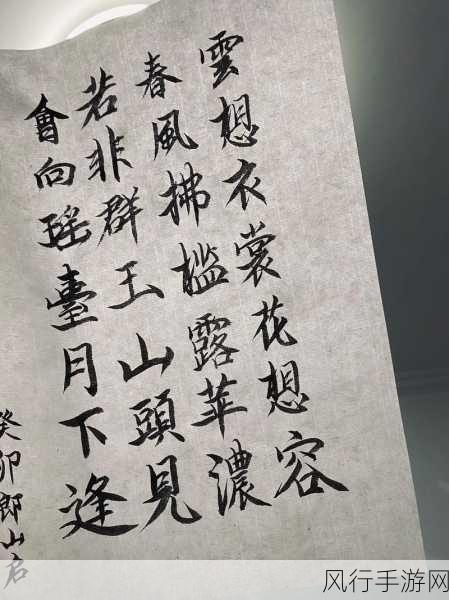 雲想衣裳花想容
春風拂檻露華濃
若非群玉山頭見
會向瑤臺月下逢
癸卯郎山
风行手游网